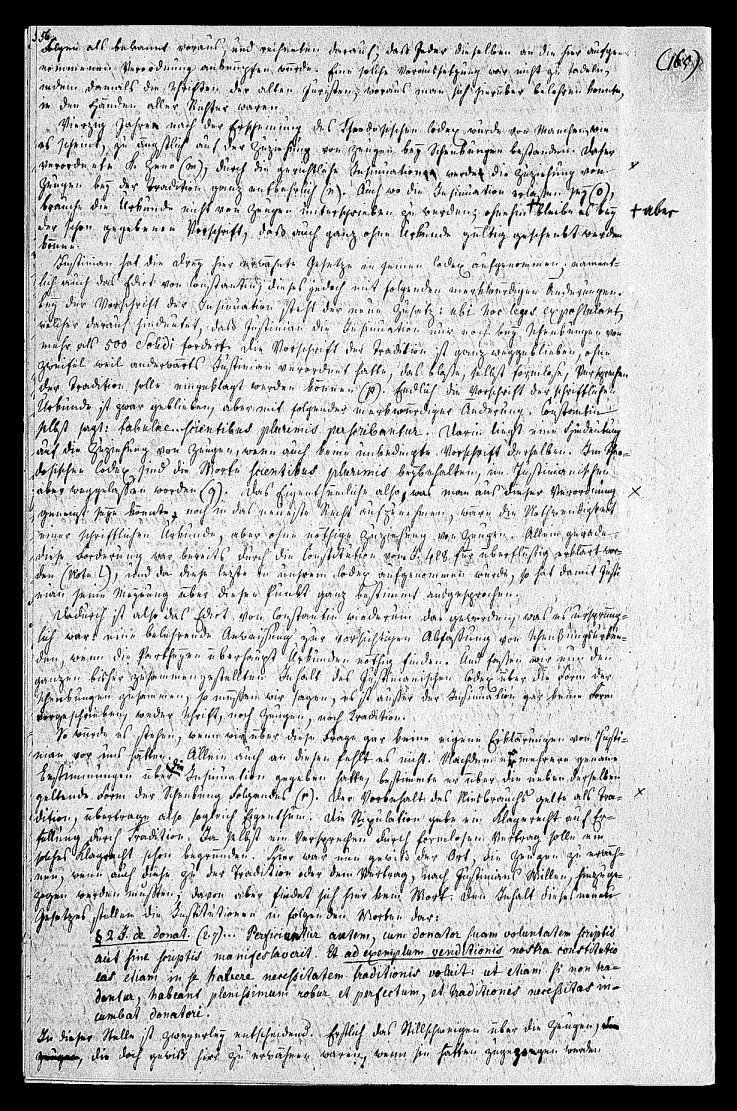 356.
(160)
Folgen als bekannt voraus, und rechneten darauf, daß Jeder dieselben an die hier aufge-
nommenen Verordnung anknüpfen würde. Eine solche Voraussetzung war nicht zu tadeln,
indem damals die Schriften der alten Juristen, woraus man sich hierüber belehren konnte,
in den Händen aller Richter waren.
Vierzig Jahre nach der Erscheinung des Theodosischen Codex wurde von Manchen, wie
es scheint, zu ängstlich auf der Zuziehung von Zeugen bey Schenkungen bestanden. Daher
verordnete K. Zeno (m), durch die gerichtliche Insinuation werde die Zuziehung von
Zeugen bey der Tradition ganz entbehrlich (n). Auch wo die Insinuation erlassen sey (o),
brauche die Urkunde nicht von Zeugen unterschrieben zu werden; ohnehin + bleibe es bey
+ aber
der schon gegebenen Vorschrift, daß auch ganz ohne Urkunde gültig geschenkt werden
könne.
Justinian hat die drey hier erwähnte Gesetze in seinen Codex aufgenommen, nament-
lich auch das Edict von Constantin, dieses jedoch mit folgenden merkwürdigen Änderungen.
Bey der Vorschrift der Insinuation steht der neue Zusatz: ubi hoc leges expostulant,
welcher darauf hindeutet, daß Justinian die Insinuation nur noch bey Schenkungen von
mehr als 500 Solidi fordert. Die Vorschrift der Tradition ist ganz weggeblieben, ohne
Zweifel weil anderwärts Justinian verordnet hatte, das bloße, selbst formlose, Versprechen
der Tradition solle eingeklagt werden können (p). Endlich die Vorschrift der schriftlichen
Urkunde ist zwar geblieben, aber mit folgender merkwürdiger Änderung. Constantin
selbst sagt: tabulae.. scientibus plurimis perscribantur. Darin liegt eine Hindeutung
auf die Zuziehung von Zeugen, wenn auch keine unbedingte Vorschrift derselben. Im Theo-
dosischen Codex sind die Worte scientibus plurimis beybehalten, im Justinianischen
aber weggelassen worden (q). Das Eigenthümliche also, was man aus dieser Verordnung
geneigt seyn könnte, noch in das neueste Recht aufzunehmen, wäre die Nothwendigkeit
einer schriftlichen Urkunde, aber ohne nöthige Zuziehung von Zeugen. Allein gerade
diese Forderung war bereits durch die Constitution vom J. 428 für überflüssig erklärt wor-
den (Note l), und da diese letzte in unsren Codex aufgenommen wurde, so hat damit Justi-
nian seine Meynung über diesen Punkt ganz bestimmt ausgesprochen.
Dadurch ist also das Edict von Constantin wiederum das geworden, was es ursprüng-
lich war: eine belehrende Anweisung zur vorsichtigen Abfassung von Schenkungsurkun-
den, wenn die Parteyen überhaupt Urkunden nöthig finden. Und fassen wir nun den
ganzen bisher zusammengestellten Inhalt des Justinianischen Codex über die Form der
Schenkungen zusammen, so müssen wir sagen, es ist außer der Insinuation gar keine Form
vorgeschrieben, weder Schrift, noch Zeugen, noch Tradition.
So würde es stehen, wenn wir über diese Frage gar keine eigene Erklärungen von Justi-
nian vor uns hätten. Allein auch an diesen fehlt es nicht. Nachdem er mehrere genaue
Bestimmungen über die Insinuation gegeben hatte, bestimmte er über die neben derselben
geltende Form der Schenkung Folgendes (r). Der Vorbehalt des Niesbrauchs gelte als Tra-
dition, übertrage also sogleich Eigenthum. Die Stipulation gebe ein Klagerecht auf Er-
füllung durch Tradition. Ja selbst ein Versprechen durch formlosen Vertrag solle ein
solches Klagrecht schon begründen. Hier war nun gewiß der Ort, die Zeugen zu erwäh-
nen, wenn auch diese zu der Tradition oder dem Vertrag, nach Justinians Willen, hinzuge-
zogen werden mußten; davon aber findet sich hier kein Wort. Den Inhalt dieses neuen
Gesetzes stellen die Institutionen in folgenden Worten dar:
§ 2 J. de donat. (2. 7).. Perficiuntur autem, cum donator suam voluntatem scriptis
aut sine scriptis manifestaverit. Et ad exemplum venditionis nostra constitutio
eas etiam in se habere necessitatem traditionis voluit: ut etiam si non tra-
dantur, habeant plenissimum robur et perfectum, et traditionis necessitas in-
cumbat donatori.
In dieser Stelle ist zweyerley entscheidend. Erstlich das Stillschweigen über die Zeugen,
die doch gewiß hier zu erwähnen waren, wenn sie hätten zugezogen werden